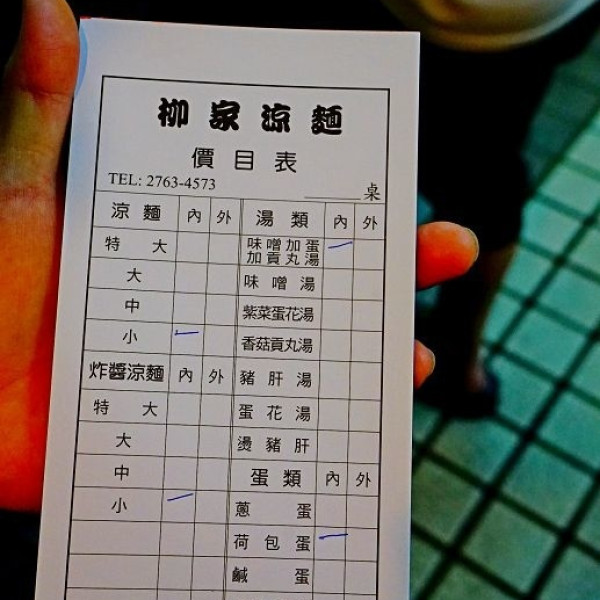 柳家涼麵
價目表
TEL: 2763-4573 ______桌
涼麵 內 外 湯類 內 外
特大 味噌加蛋加貢丸湯
大 味噌湯
中 紫菜蛋花湯
小 香菇貢丸湯
炸醬涼麵 內 外 豬肝湯
特大 蛋花湯
大 燙豬肝
中 蛋類 內 外
小 蔥蛋
荷包蛋
鹹蛋